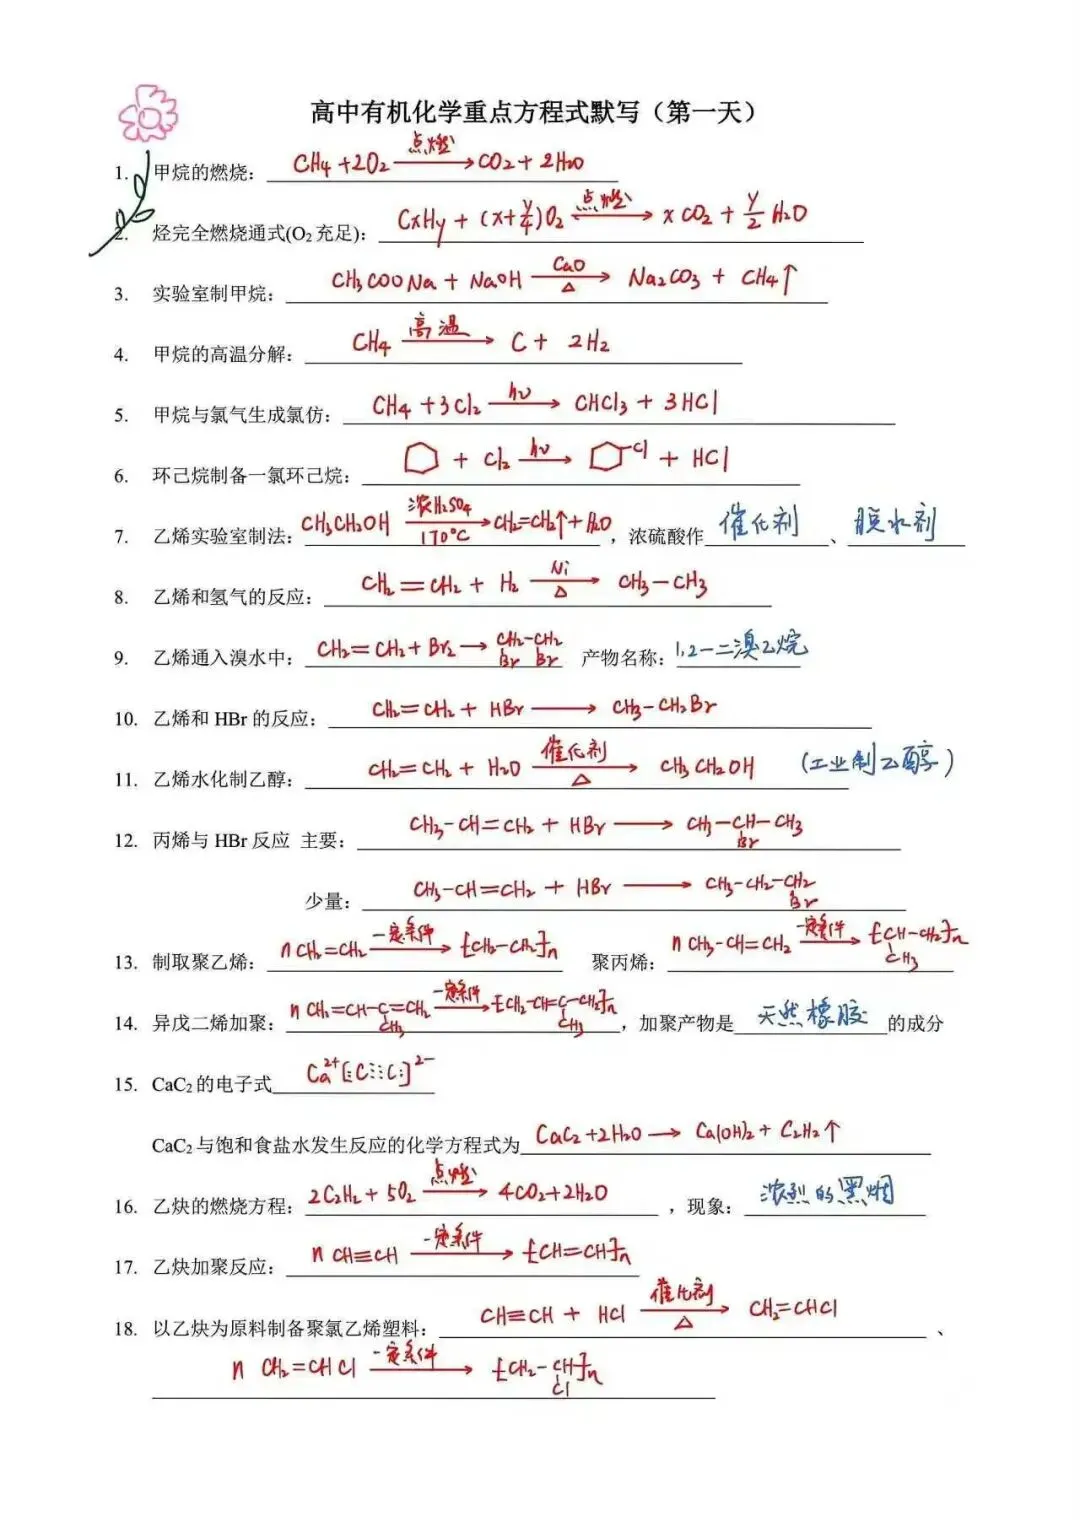 高中有机化学重点方程式默写（第一天）
1. 甲烷的燃烧: CH4+2O2 —点燃→ CO2+2H2O
2. 烃完全燃烧通式(O2充足): CxHy+(x+y/4)O2 —点燃→ xCO2+y/2 H2O
3. 实验室制甲烷: CH3COONa+NaOH —CaO/△→ Na2CO3+CH4↑
4. 甲烷的高温分解: CH4 —高温→ C+2H2
5. 甲烷与氯气生成氯仿: CH4+3Cl2 —hν→ CHCl3+3HCl
6. 环己烷制备一氯环己烷: ⬡ + Cl2 —hν→ ⬡-Cl + HCl
7. 乙烯实验室制法: CH3CH2OH —浓H2SO4/170℃→ CH2=CH2↑+H2O ，浓硫酸作 催化剂 、 脱水剂
8. 乙烯和氢气的反应: CH2=CH2+H2 —Ni/△→ CH3-CH3
9. 乙烯通入溴水中: CH2=CH2+Br2→ CH2-CH2 产物名称: 1,2-二溴乙烷
Br Br
10. 乙烯和 HBr 的反应: CH2=CH2+HBr → CH3-CH2Br
11. 乙烯水化制乙醇: CH2=CH2+H2O —催化剂/△→ CH3CH2OH (工业制乙醇)
12. 丙烯与 HBr 反应 主要: CH3-CH=CH2+HBr → CH3-CH-CH3
Br
少量: CH3-CH=CH2+HBr → CH3-CH2-CH2
Br
13. 制取聚乙烯: nCH2=CH2 —一定条件→ [CH2-CH2]n 聚丙烯: nCH3-CH=CH2 —一定条件→ [CH-CH2]n
CH3
14. 异戊二烯加聚: nCH2=CH-C=CH2 —一定条件→ [CH2-CH=C-CH2]n ，加聚产物是 天然橡胶 的成分
CH3 CH3
15. CaC2的电子式 Ca2+[:C⋮⋮C:]2-
CaC2与饱和食盐水发生反应的化学方程式为 CaC2+2H2O → Ca(OH)2+C2H2↑
16. 乙炔的燃烧方程: 2C2H2+5O2 —点燃→ 4CO2+2H2O ，现象: 浓烈的黑烟
17. 乙炔加聚反应: nCH≡CH —一定条件→ [CH=CH]n
18. 以乙炔为原料制备聚氯乙烯塑料: CH≡CH+HCl —催化剂/△→ CH2=CHCl 、
nCH2=CHCl —一定条件→ [CH2-CH]n
Cl